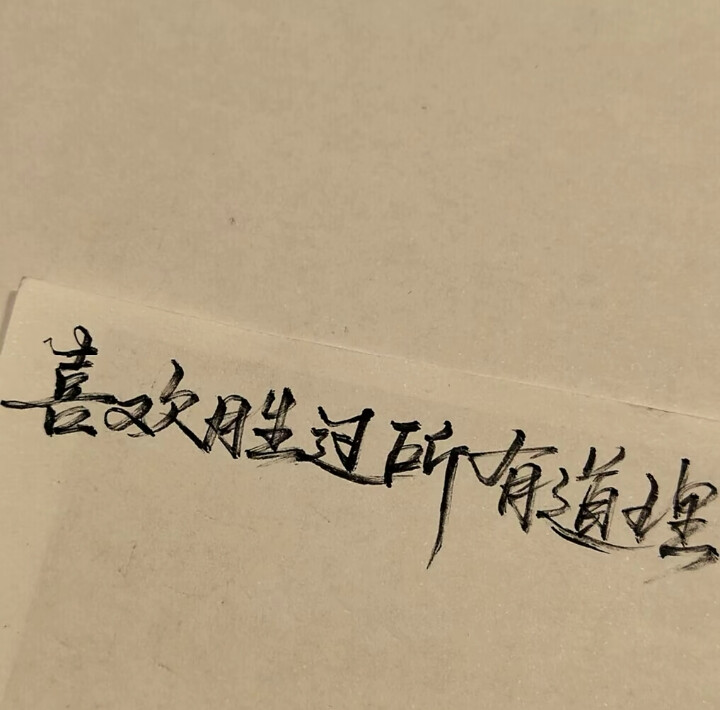 喜欢胜过所有道理